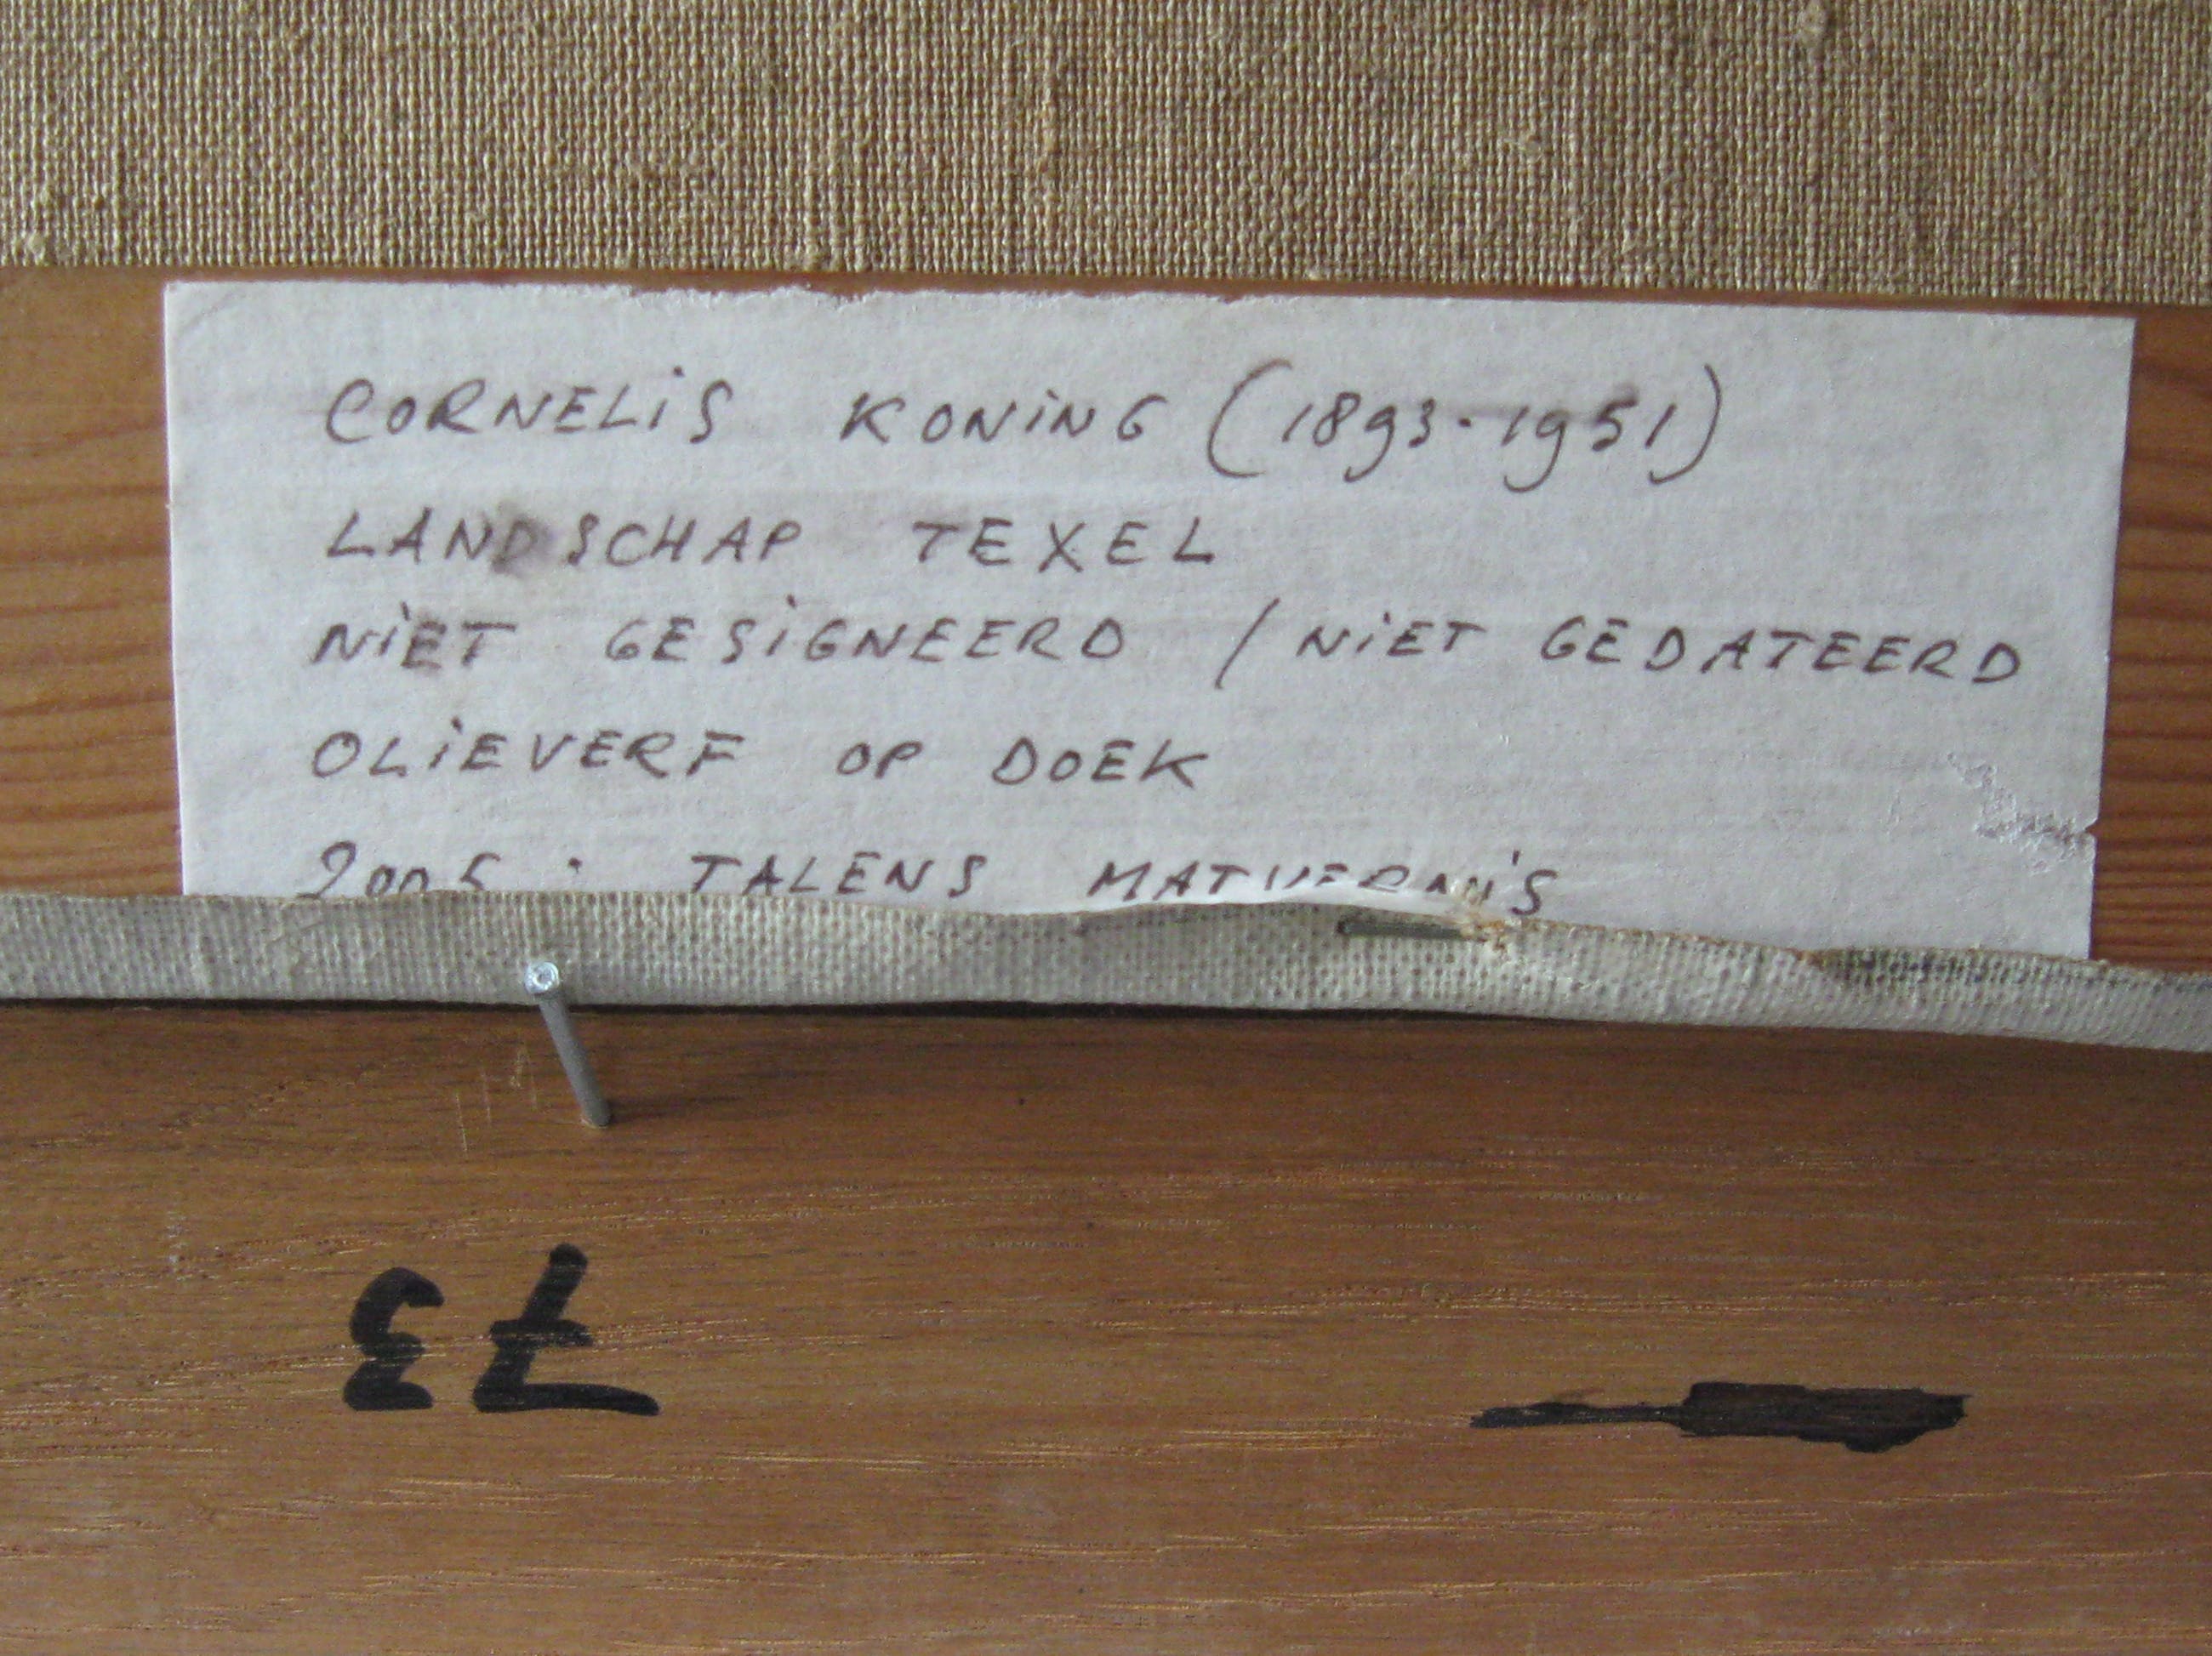 CORNELIS KONING (1893-1951)
LANDSCHAP TEXEL
NIET GESIGNEERD / NIET GEDATEERD
OLIEVERF OP DOEK
2005: TALENS MATVERNIS
73